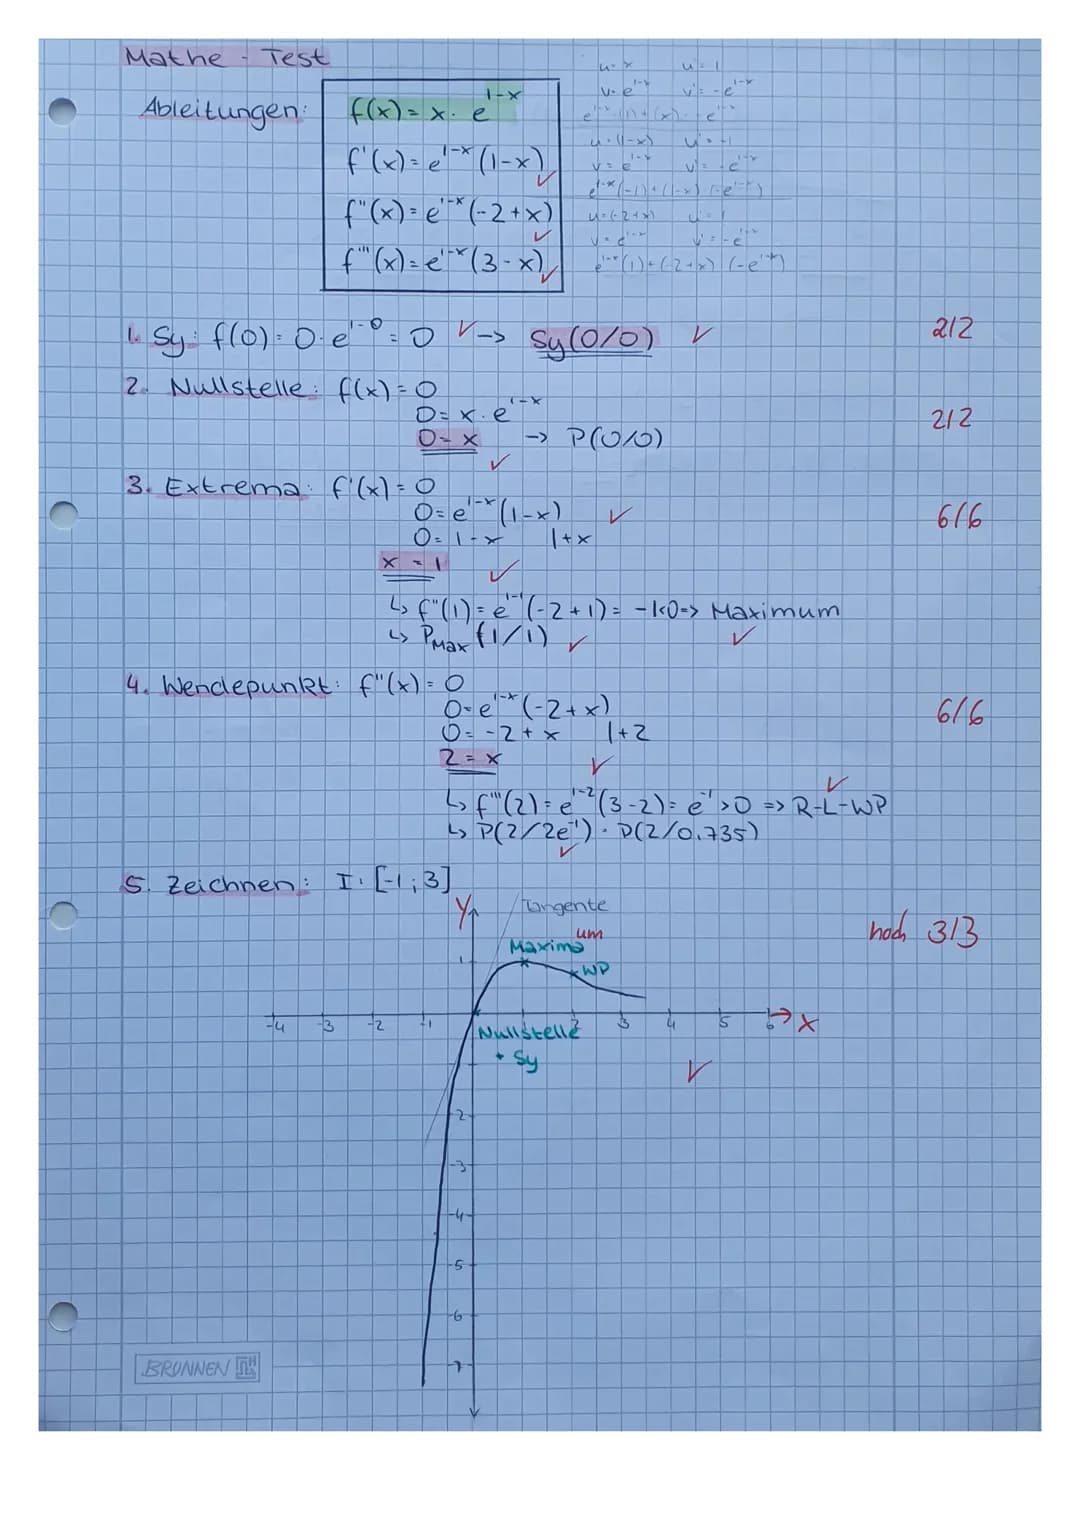 Mathe - Test
Ableitungen:
f(x) = x · e^1-x
f'(x) = e^1-x (1-x) ✓
f"(x) = e^1-x (-2+x) ✓
f'''(x) = e^1-x (3-x) ✓
u = x u' = 1
v = e^1-x v' = -e^1-x
e^1-x · (1) + (x) · -e^1-x
u = (1-x) u' = -1
v = e^1-x v' = -e^1-x
e^1-x (-1) + (1-x) (-e^1-x)
u = (-2+x) u' = 1
v = e^1-x v' = -e^1-x
e^1-x (1) + (-2+x) (-e^1-x)
1. Sy: f(0) = 0 · e^1-0 = 0 ✓ -> Sy(0/0) ✓ 2/2
2. Nullstelle: f(x) = 0
0 = x · e^1-x 2/2
0 = x -> P(0/0)
✓
3. Extrema: f'(x) = 0
0 = e^1-x (1-x) ✓ 6/6
0 = 1-x |+x
x = 1 ✓
↳ f"(1) = e^1-1 (-2+1) = -1<0 => Maximum
↳ PMax (1/1) ✓ ✓
4. Wendepunkt: f"(x) = 0
0 = e^1-x (-2+x) 6/6
0 = -2+x |+2
2 = x ✓
↳ f'''(2) = e^1-2 (3-2) = e^-1 >0 => R-L-WP ✓
↳ P(2/2e^-1) · P(2/0,735)
✓
5. Zeichnen: I: [-1;3]
y Tangente
hoch 3/3
Maxima um
1 WP
-4 -3 -2 -1 2 3 4 5 6 x
Nullstelle
+ Sy ✓
-2
-3
-4
-5
-6
-7
BRUNNEN